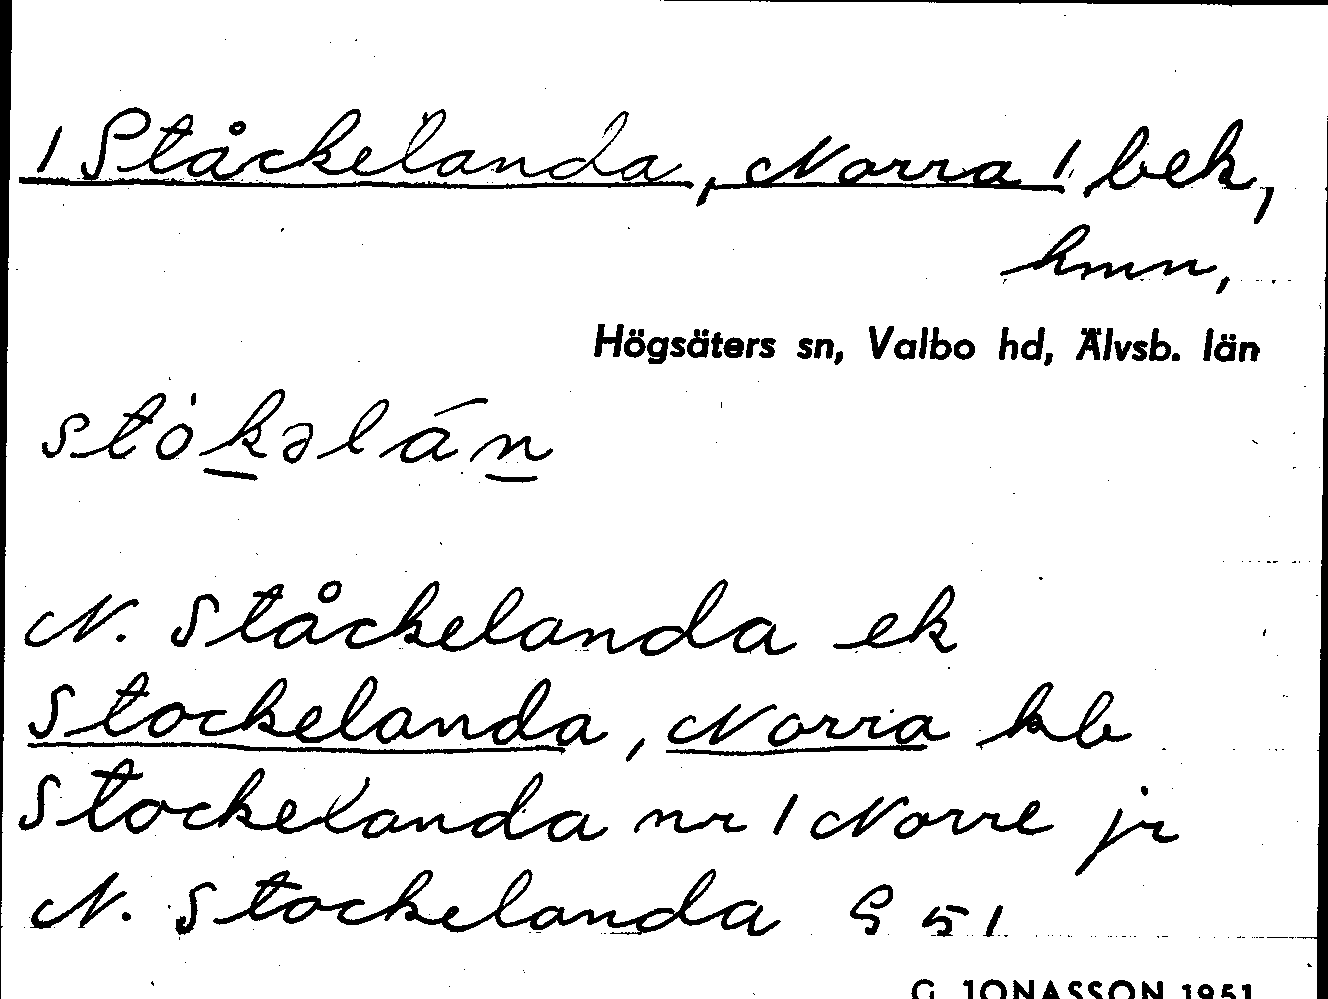 / Ståckelanda, Norra / bek,
hmn,
Högsäters sn, Valbo hd, Älvsb. län
stòkəlán
N. Ståckelanda ek
Stockelanda, Norra kb
Stockelanda nr 1 Norre jr
N. Stockelanda G 51
G. JONASSON 1951